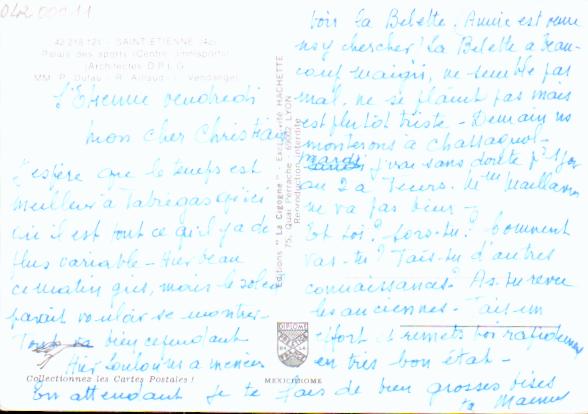 042 000 11
42 218 121 - SAINT-ETIENNE
Palais des sports (Centre omnisports)
(Architectes D.P.L.G.
MM. P. Dufau - R. Aillaud - Vendange)
St Etienne vendredi
mon cher Christian
J'espère que le temps est
meilleur à qu'ici
où il est tout ce qu'il y a de
plus variable - Hier beau
ce matin gris, mais le soleil
paraît vouloir se montrer.
Tout va bien cependant
Hier m'a menée
Collectionnez les Cartes Postales !
En attendant je te fais de bien grosses bises
ta Mamie
Editions "La Cigogne" - Exclusivité HACHETTE
75, Quai Perrache - 69002 LYON
Reproduction interdite
MEXICHROME
voir la Belette. Annie est venue
ns y chercher! La Belette a beau-
coup maigri, ne semble pas
mal, ne se plaint pas mais
est plutôt triste - Demain ns
monterons à
mardi j'irai sans doute
ou 2 à Mme
ne va pas bien -
Et toi? Sors-tu? Comment
vas-tu? Fais-tu d'autres
connaissances? As-tu revu
les anciennes - Fais un
effort et remets toi rapidement
en très bon état -